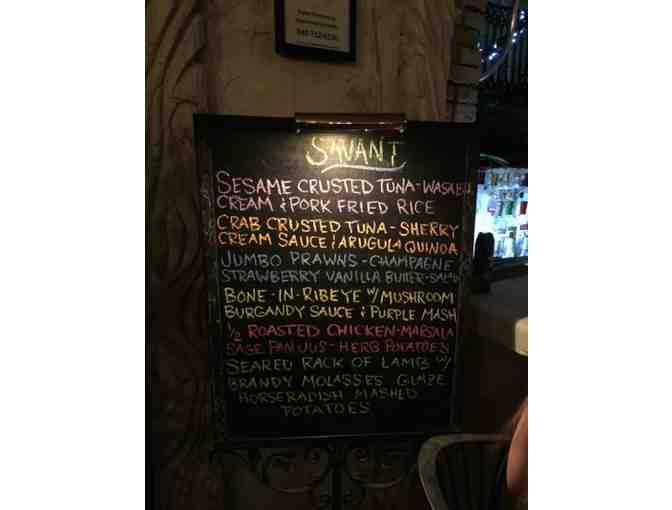 SAVANT
SESAME CRUSTED TUNA-WASABI
CREAM & PORK FRIED RICE
CRAB CRUSTED TUNA - SHERRY
CREAM SAUCE & ARUGULA QUINOA
JUMBO PRAWNS - CHAMPAGNE
STRAWBERRY VANILLA BUTTER-SALAD
BONE-IN-RIBEYE W/ MUSHROOM
BURGANDY SAUCE & PURPLE MASH
1/2 ROASTED CHICKEN-MARSALA
SAGE PAN JUS - HERB POTATOES
SEARED RACK OF LAMB W/
BRANDY MOLASSES GLAZE
HORSERADISH MASHED
POTATOES